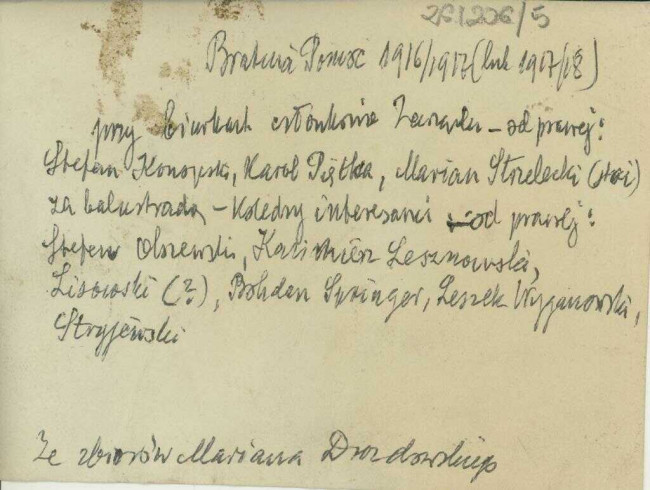 261206/5
Bratnia Pomoc 1916/1917 (lub 1917/18)
przy biurkach członkowie Zarządu – od prawej:
Stefan Konopski, Karol Piątka, Marian Strzelecki (stoi)
za balustradą – koledzy interesanci – od prawej:
Stefan Olszewski, Kazimierz Lesznowski,
Lisowski (?), Bohdan Springer, Leszek Wyganowski,
Stryjewski
Ze zbiorów Mariana Drozdowskiego